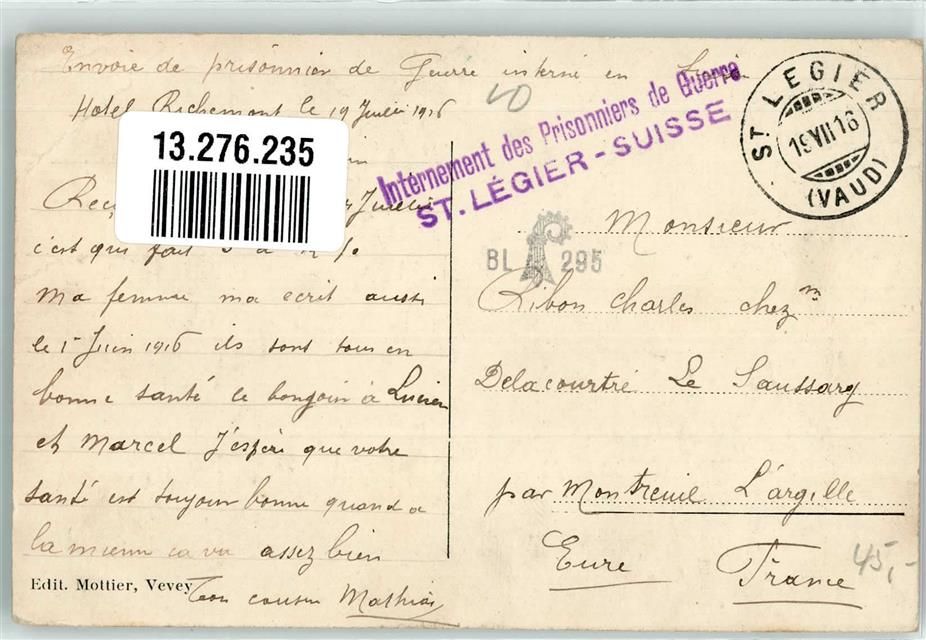 Envoie de prisonnier de Guerre interné en Suisse
Hotel Richemont le 19 Juillet 1916
40
Internement des Prisonniers de Guerre
ST. LÉGIER-SUISSE
ST. LEGIER
19 VII 16
(VAUD)
13.276.235
Juillet
c'est qui fait
ma femme ma ecrit aussi
le 1r Juin 1916 ils sont tous en
bonne santé le bonjoir à Lucien
et Marcel J'espère que votre
santé est toujour bonne quand a
la mienn ca va assez bien
Ton cousin Mathias
Edit. Mottier, Vevey
BL 295
Monsieur
Ribon Charles chez m
Delacourtré Le Saussary
par Montreuil L'argille
Eure France
45,-